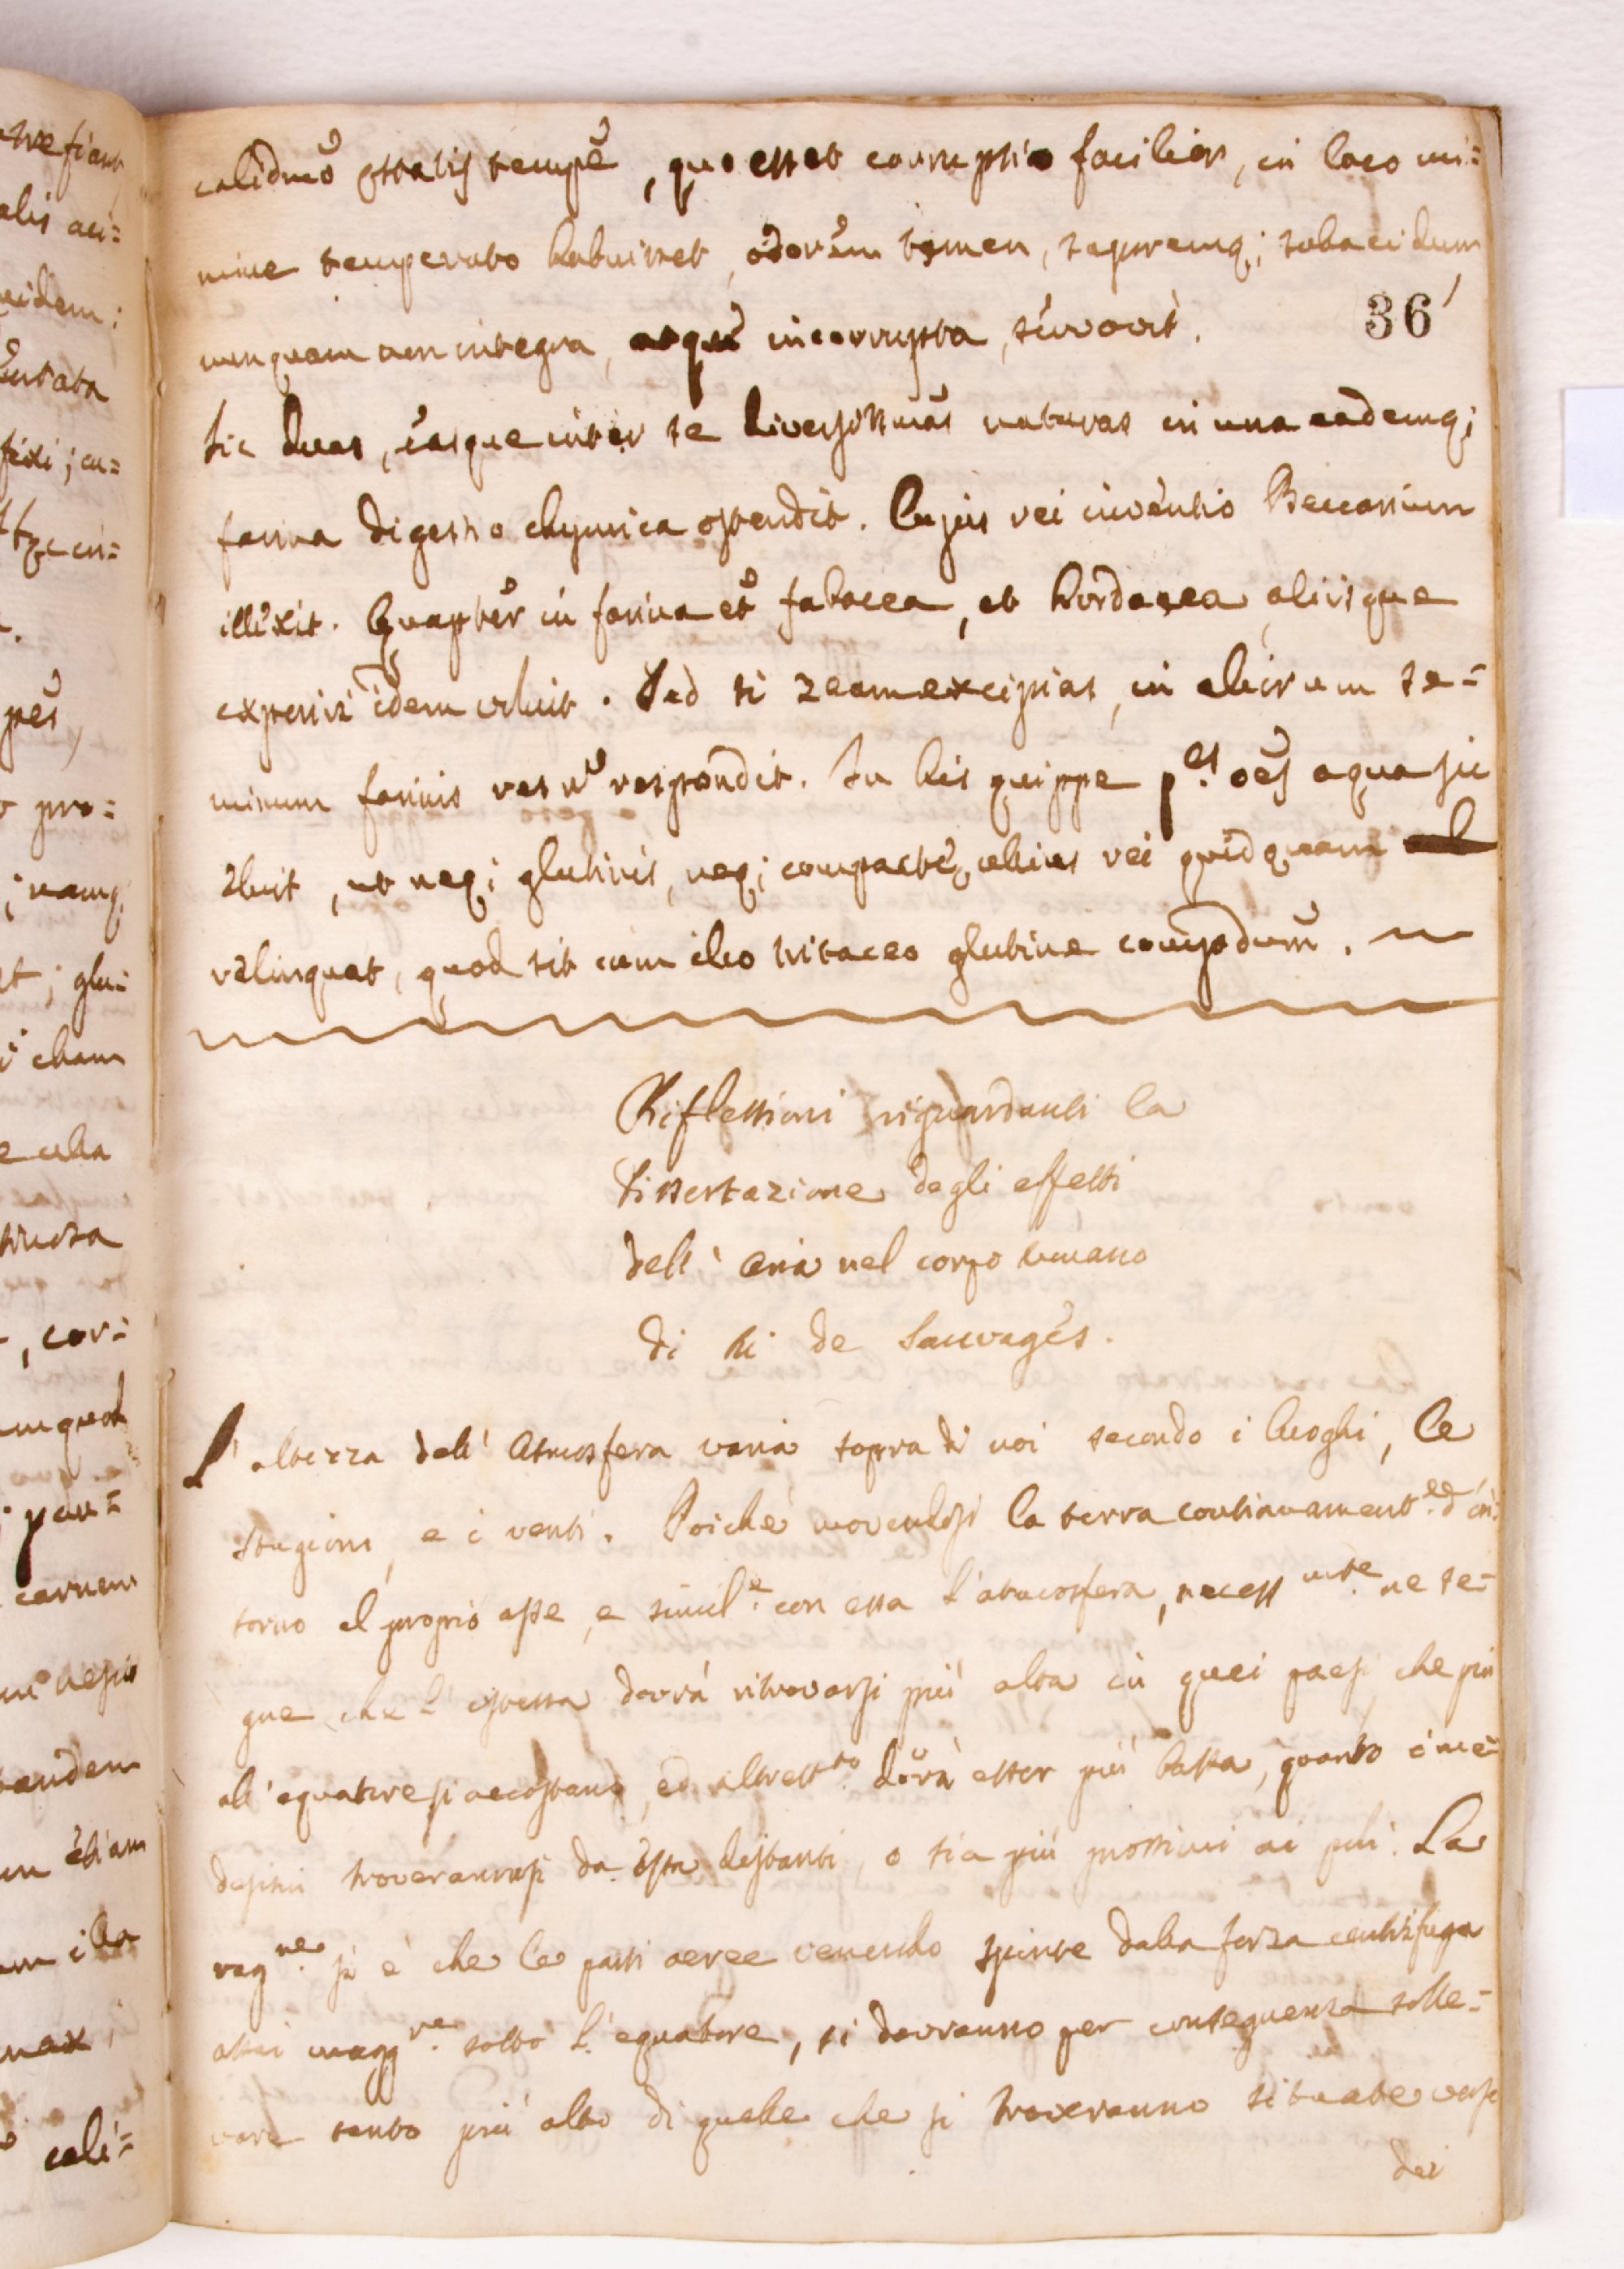 calidmo estatis tempe, quo esset corruptio facilior, in loco mi=
nime temperato habuisset, odorem tamen, saporemq; subacidum
nunquam an integra, atque incorrupta, servavit.
36
Sic duas, easque inter se diversissimas naturas in una eademq;
farina digestio chymica ostendit. Cujus rei inventio Beccarium
illexit. Quapter in farina et fabacea, et hordacea, aliisque
experiri idem voluit. Sed si zeam excipias, in aliarum se=
minum farinis res n respondit. In his quippe p.es oes aqua sic
eluit, ut neq; glutinis, neq; compactae, ullius rei quidquam
relinquat, quod sit cum illo triticeo glutine comparandum.
Riflessioni riguardanti la
Dissertazione degli effetti
dell' aria nel corpo umano
di de Sauvages.
L' altezza dell' Atmosfera varia sopra di noi secondo i luoghi, le
stagioni, e i venti. Poichè movendosi la terra continuament.e d' in=
torno al proprio asse, e simil.e con essa l' atmosfera, necess.mte ne se=
gue, che l' istessa dovrà ritrovarsi più alta in quei paesi che più
all' equatore si accostano, ed altrett.to dovrà esser più bassa, quanto i me=
desimi troveransi da esso distanti, o sia più prossimi ai poli. La
rag.ne si è che le parti aeree venendo spinte dalla forza centrifuga
assai magg.re sotto l' equatore, si dovranno per conseguenza solle=
vare tanto più alto di quelle che si troveranno situate verso
dei